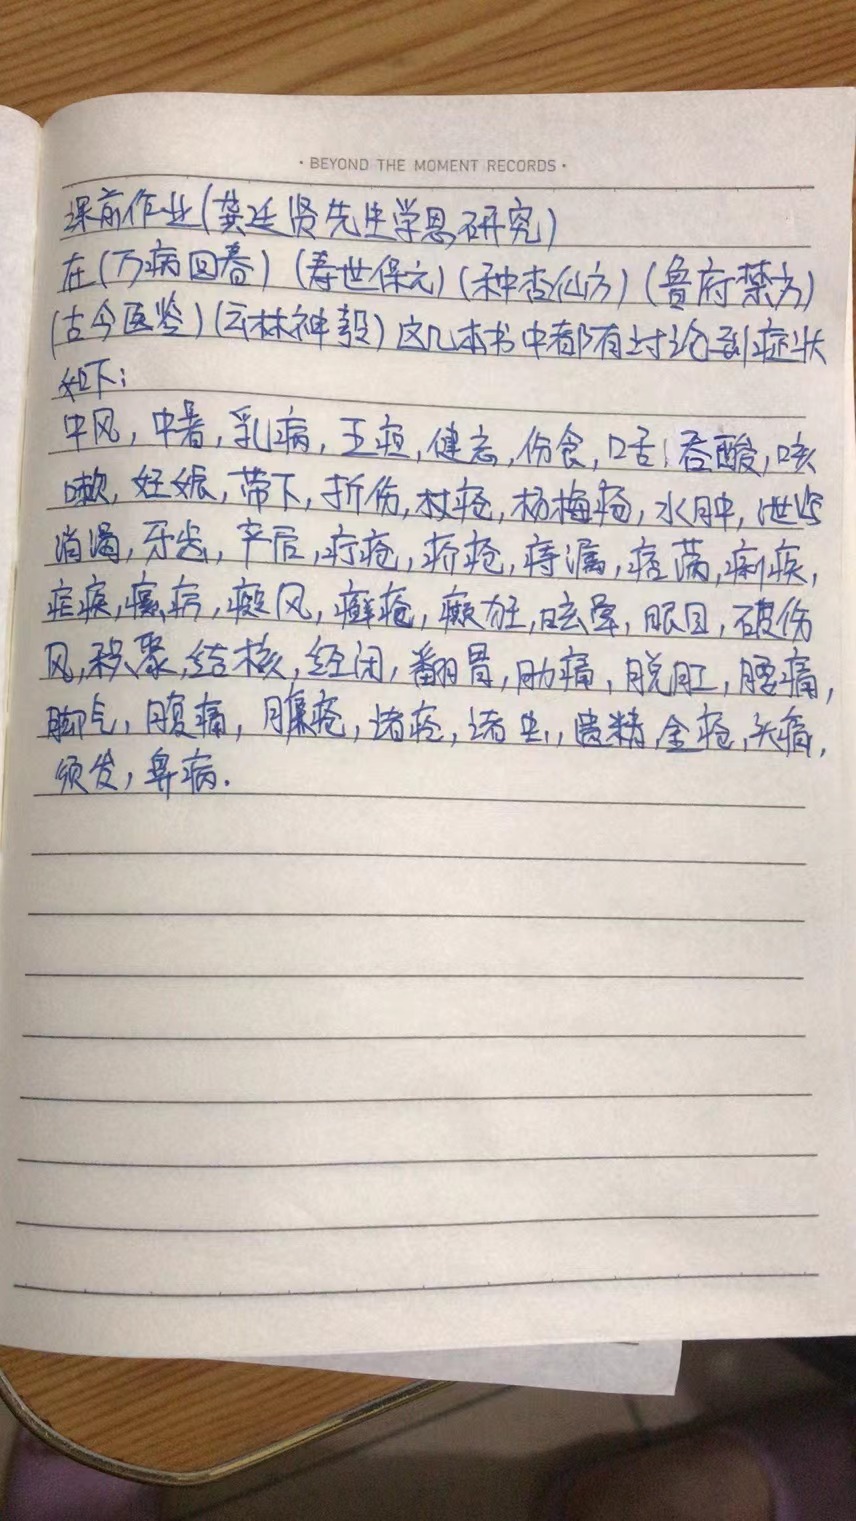 · BEYOND THE MOMENT RECORDS ·
课前作业(龚廷贤先生学思研究)
在(万病回春)(寿世保元)(种杏仙方)(鲁府禁方)
(古今医鉴)(云林神彀)这几本书中都有讨论到症状
如下:
中风,中暑,乳病,五疸,健忘,伤食,口舌,吞酸,咳
嗽,妊娠,带下,折伤,杖疮,杨梅疮,水肿,泄泻
消渴,牙齿,产后,疔疮,疥疮,痔漏,痞满,痢疾,
疟疾,癫病,癜风,癣疮,癫狂,眩晕,眼目,破伤
风,积聚,结核,经闭,翻胃,胁痛,脱肛,腰痛,
脚气,腹痛,臁疮,诸疮,诸虫,遗精,金疮,头痛,
须发,鼻病.